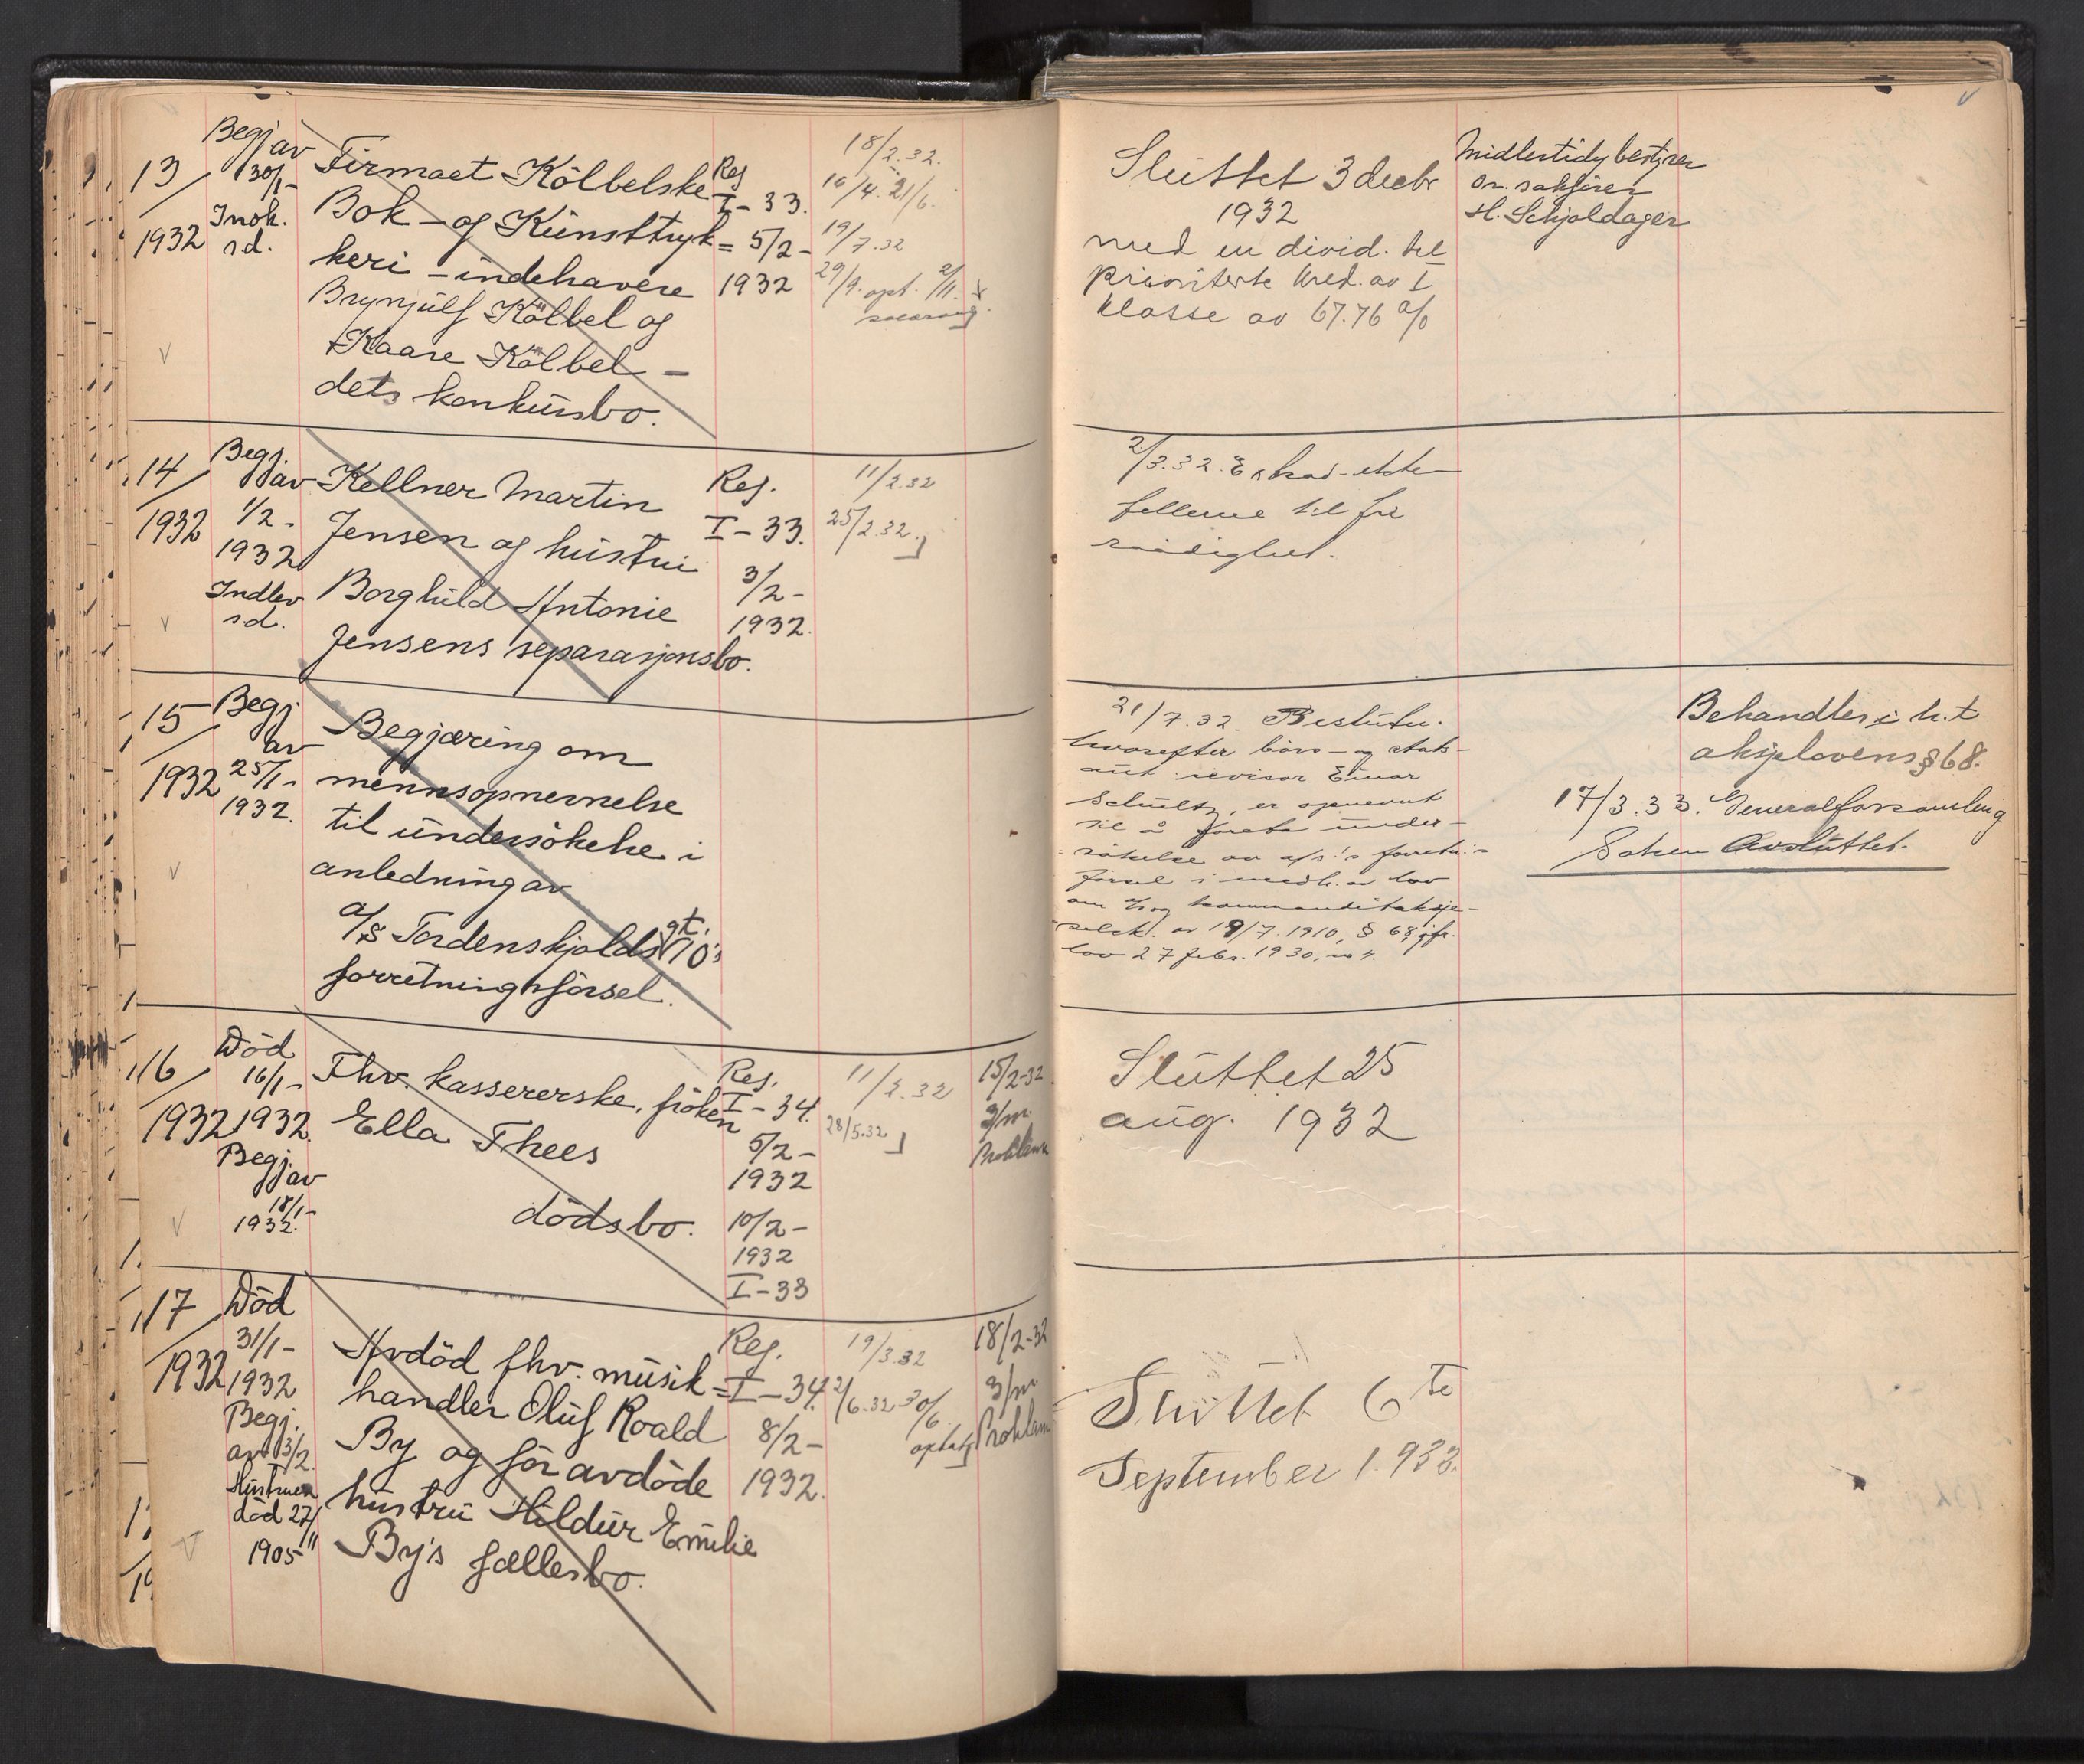 13/1932
Begj av
30/1-
Insk.
sd.
Firmaet Kölbelske
Bok- og Kunsttryk=
keri - indehavere
Brynjulf Kölbel og
Kaare Kölbel -
dets konkursbo.
Reg
I-33.
5/2-
1932
18/2.32.
16/4. 21/6.
19/7.32
29/9. opt. 2/11.
Sluttet 3 decbr
1932
med en divid. til
prioriterte kred. av I
klasse av 67.76 %
Midlertidig bestyrer
or. sakfører
H. Schjoldager
14/1932
Begj.
av
1/2-
1932
Indlev
sd.
Kellner Martin
Jensen og hustru
Borghild Antonie
Jensens separasjonsbo.
Reg.
I-33.
3/2-
1932.
11/2.32
25/2.32.
2/3.32. ekte
fellerne til fri
raadighet.
15/1932
Begj
av
25/1-
1932.
Begjæring om
mennsopnevnelse
til undersökelse i
anledning av
a/s Tordenskjolds gt. 10's
forretningsförsel.
21/7.32. Beslutn.
hvorefter börs- og stats-
aut. revisor Einar
Schultz, er opnevnt
til å foreta under-
sökelse av a/s's forretn.
försel i medh. av lov
om a/s og kommanditaksje-
selsk. av 19/7.1910, § 68, jfr.
lov 27 febr. 1930, no 4.
Behandles i h.t
aksjelovens § 68.
17/3.33. Generalforsamling
Saken Avsluttet.
16/1932
Död
16/1-
1932.
Begj.
av
18/1-
1932.
Fhv. kassererske, fröken
Ella Thees
dödsbo.
Reg.
I-34.
5/2-
1932
10/2-
1932
I-33
11/2.32
28/5.32
15/2-32
3/m.
Proklama
Sluttet 25
aug. 1932
17/1932
Död
31/1-
1932
Begj.
av 3/2.
Hustruen
död 27/11
1905
Avdöd fhv. musik=
handler Oluf Roald
By og för avdöde
hustru Hildur Emilie
By's fællesbo.
Reg.
I-34.
8/2-
1932.
19/3.32
2/6.32 30/6.
18/2-32
3/m
Proklama
Sluttet 6te
September 1.933.